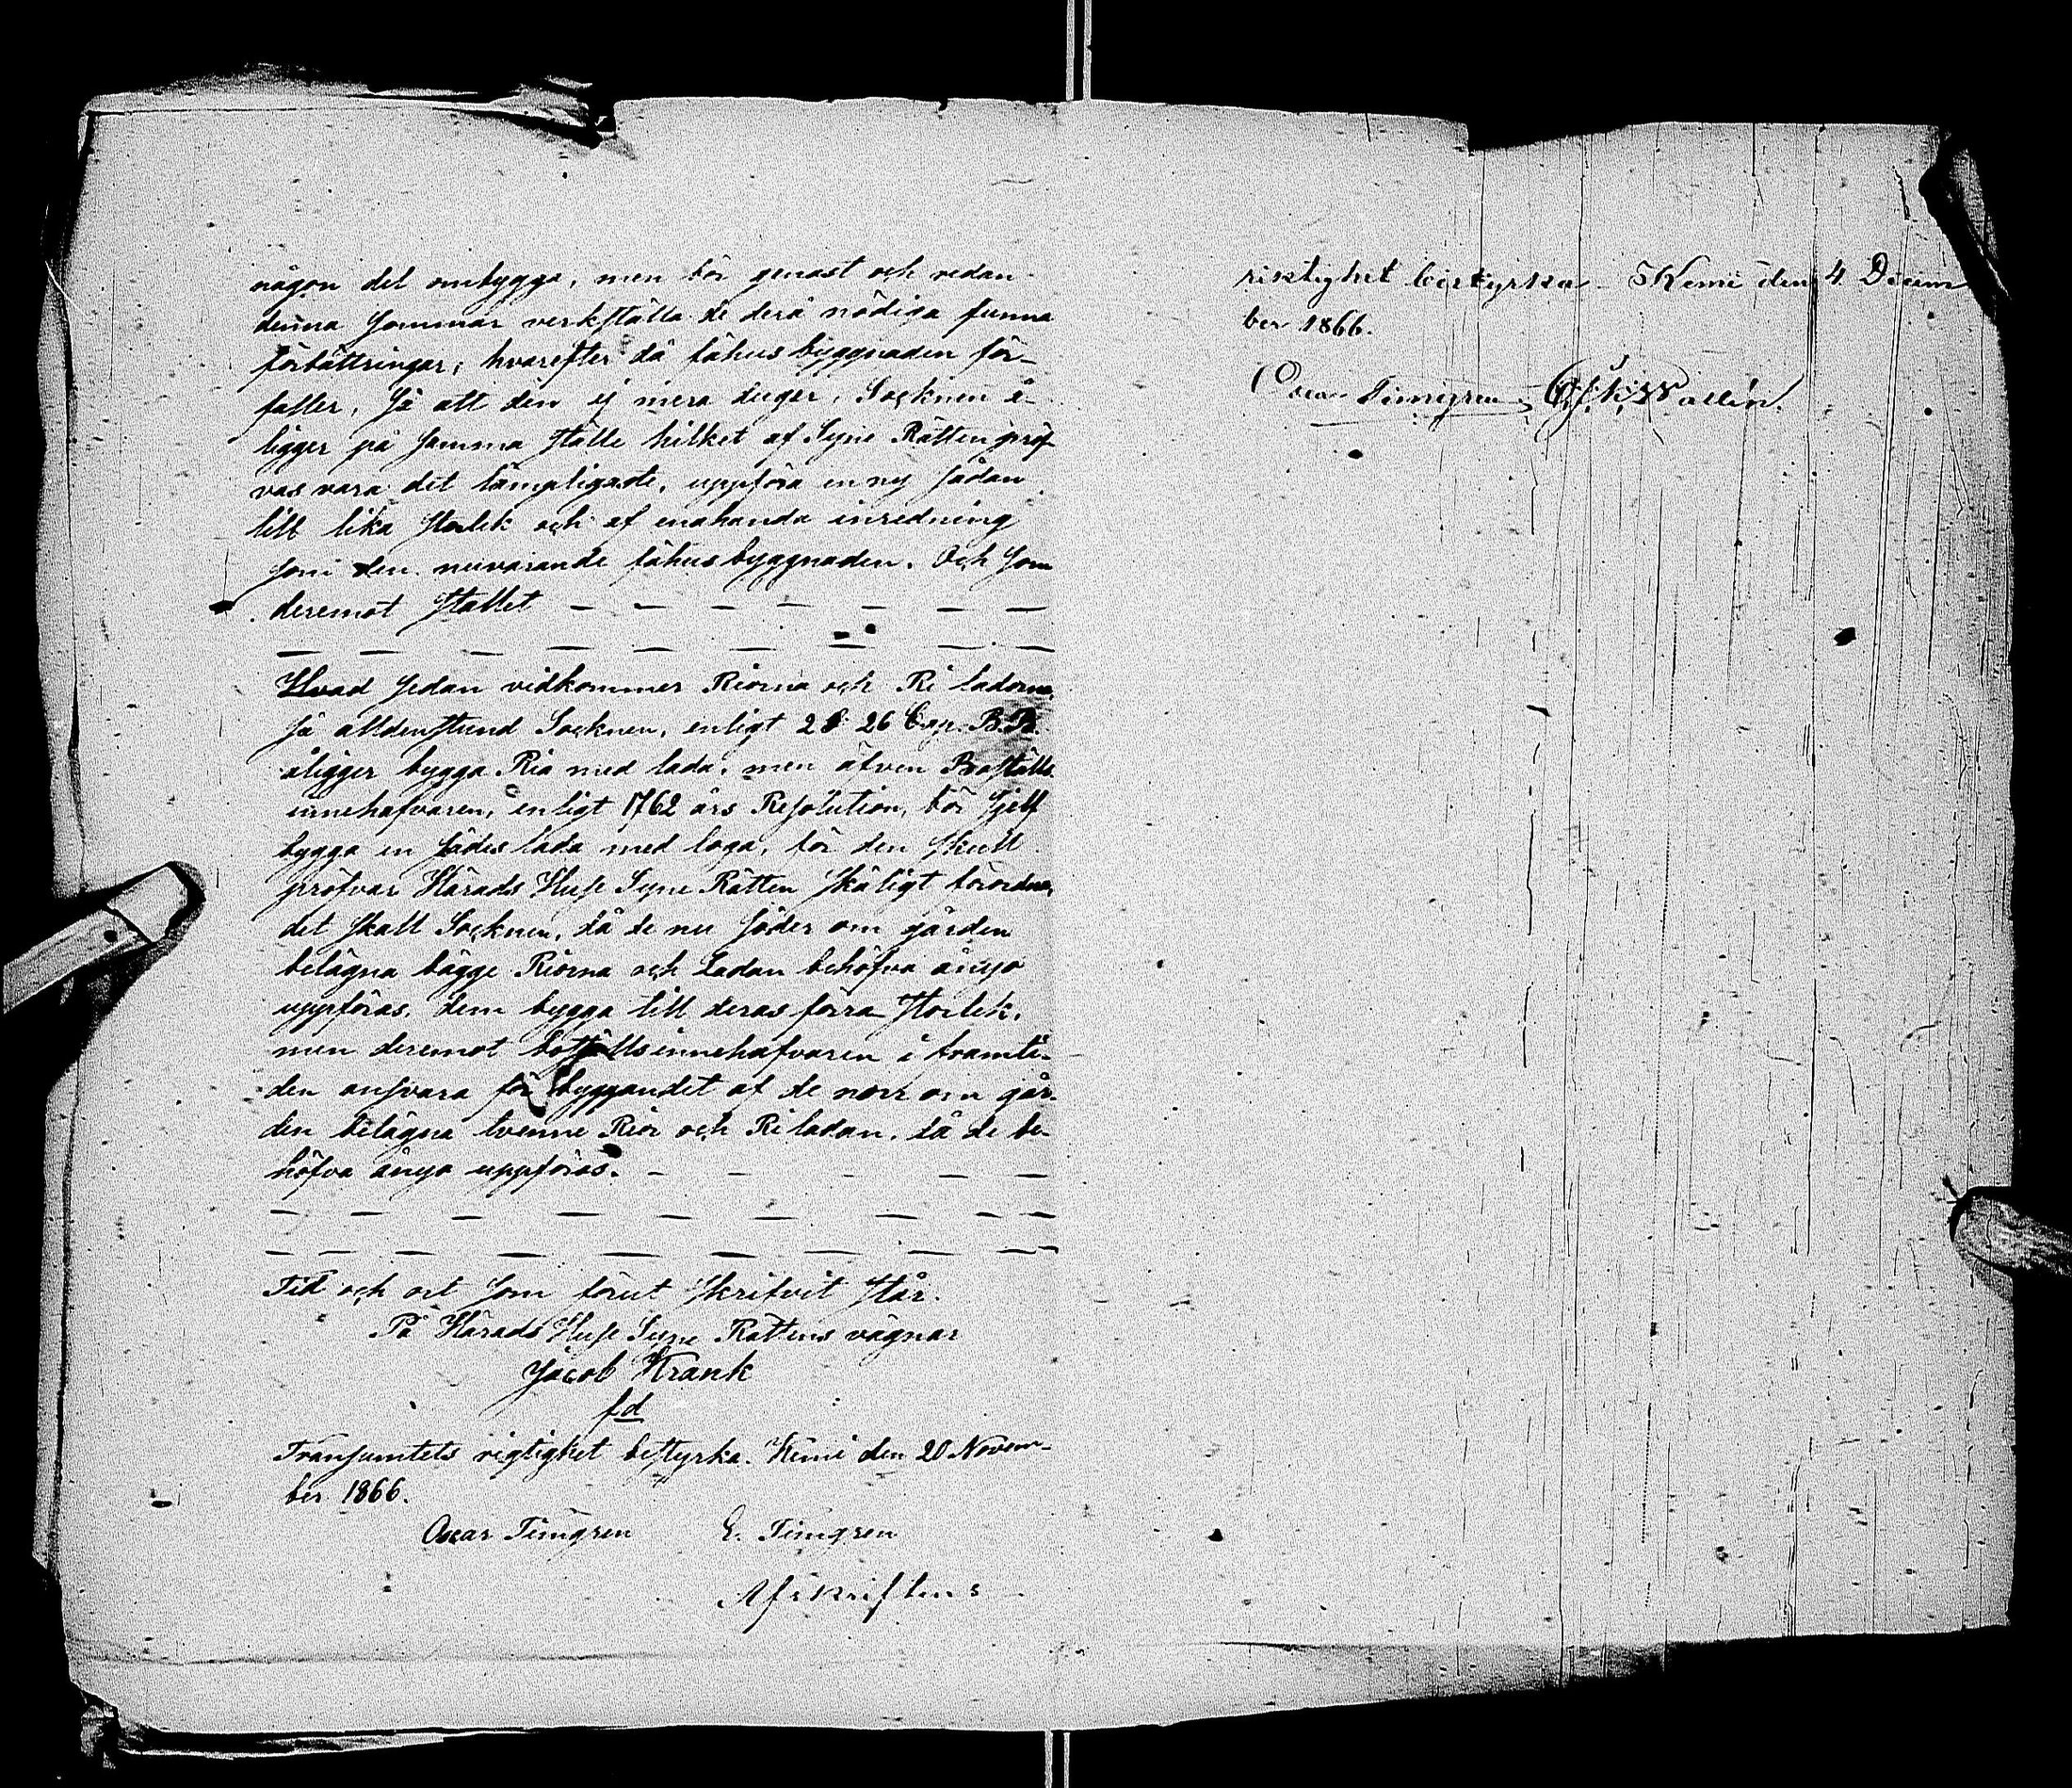 någon del ombygga, men bör genast och redan
denna sommar verkställa de derå nödiga funna
förbättringar; hvarefter då fähusbyggnaden för-
faller, så att den ej mera duger, Socknen å-
ligger på samma ställe hilket af Syne Rätten pröf
vas vara det lämpligaste, uppföra en ny sådan
till lika storlek och af enahanda inredning
som den nuvarande fähusbyggnaden. Och som
deremot stallet — — — — — — —
— — — — — — — —
Hvad sedan vidkommer Riorna och Ri ladorna,
så alldenstund Socknen, enligt 2 § 26 Cap. B.B.
åligger bygga Ria med lada, men äfven Boställs
innehafvaren, enligt 1762 års Resolution, bör sjelf
bygga en sädeslada med loga, för den skull
pröfvar Härads Huse Syne Rätten skäligt förordna,
det skall Socknen, då de nu söder om gården
belägna bägge Riorna och Ladan behöfva ånyo
uppföras, dem bygga till deras förra storlek,
men deremot boställsinnehafvaren i framti-
den ansvara för byggandet af de norr om går-
den belägna tvenne Rior och Ri ladan, då de be-
höfva ånyo uppföras. — — — — —
— — — — — — — — —
— — — — — — — — — —
Tid och ort som förut skrifvit står.
På Härads Huse Syne Rättens vägnar
Jacob Krank
fd
Transumtets rigtighet bestyrka. Kemi den 20 Novem-
ber 1866.
Oscar Timgren E. Timgren
Afskriftens
riktighet bestyrka Kemi den 4 Decem
ber 1866.
Oscar Timgren Wallin.